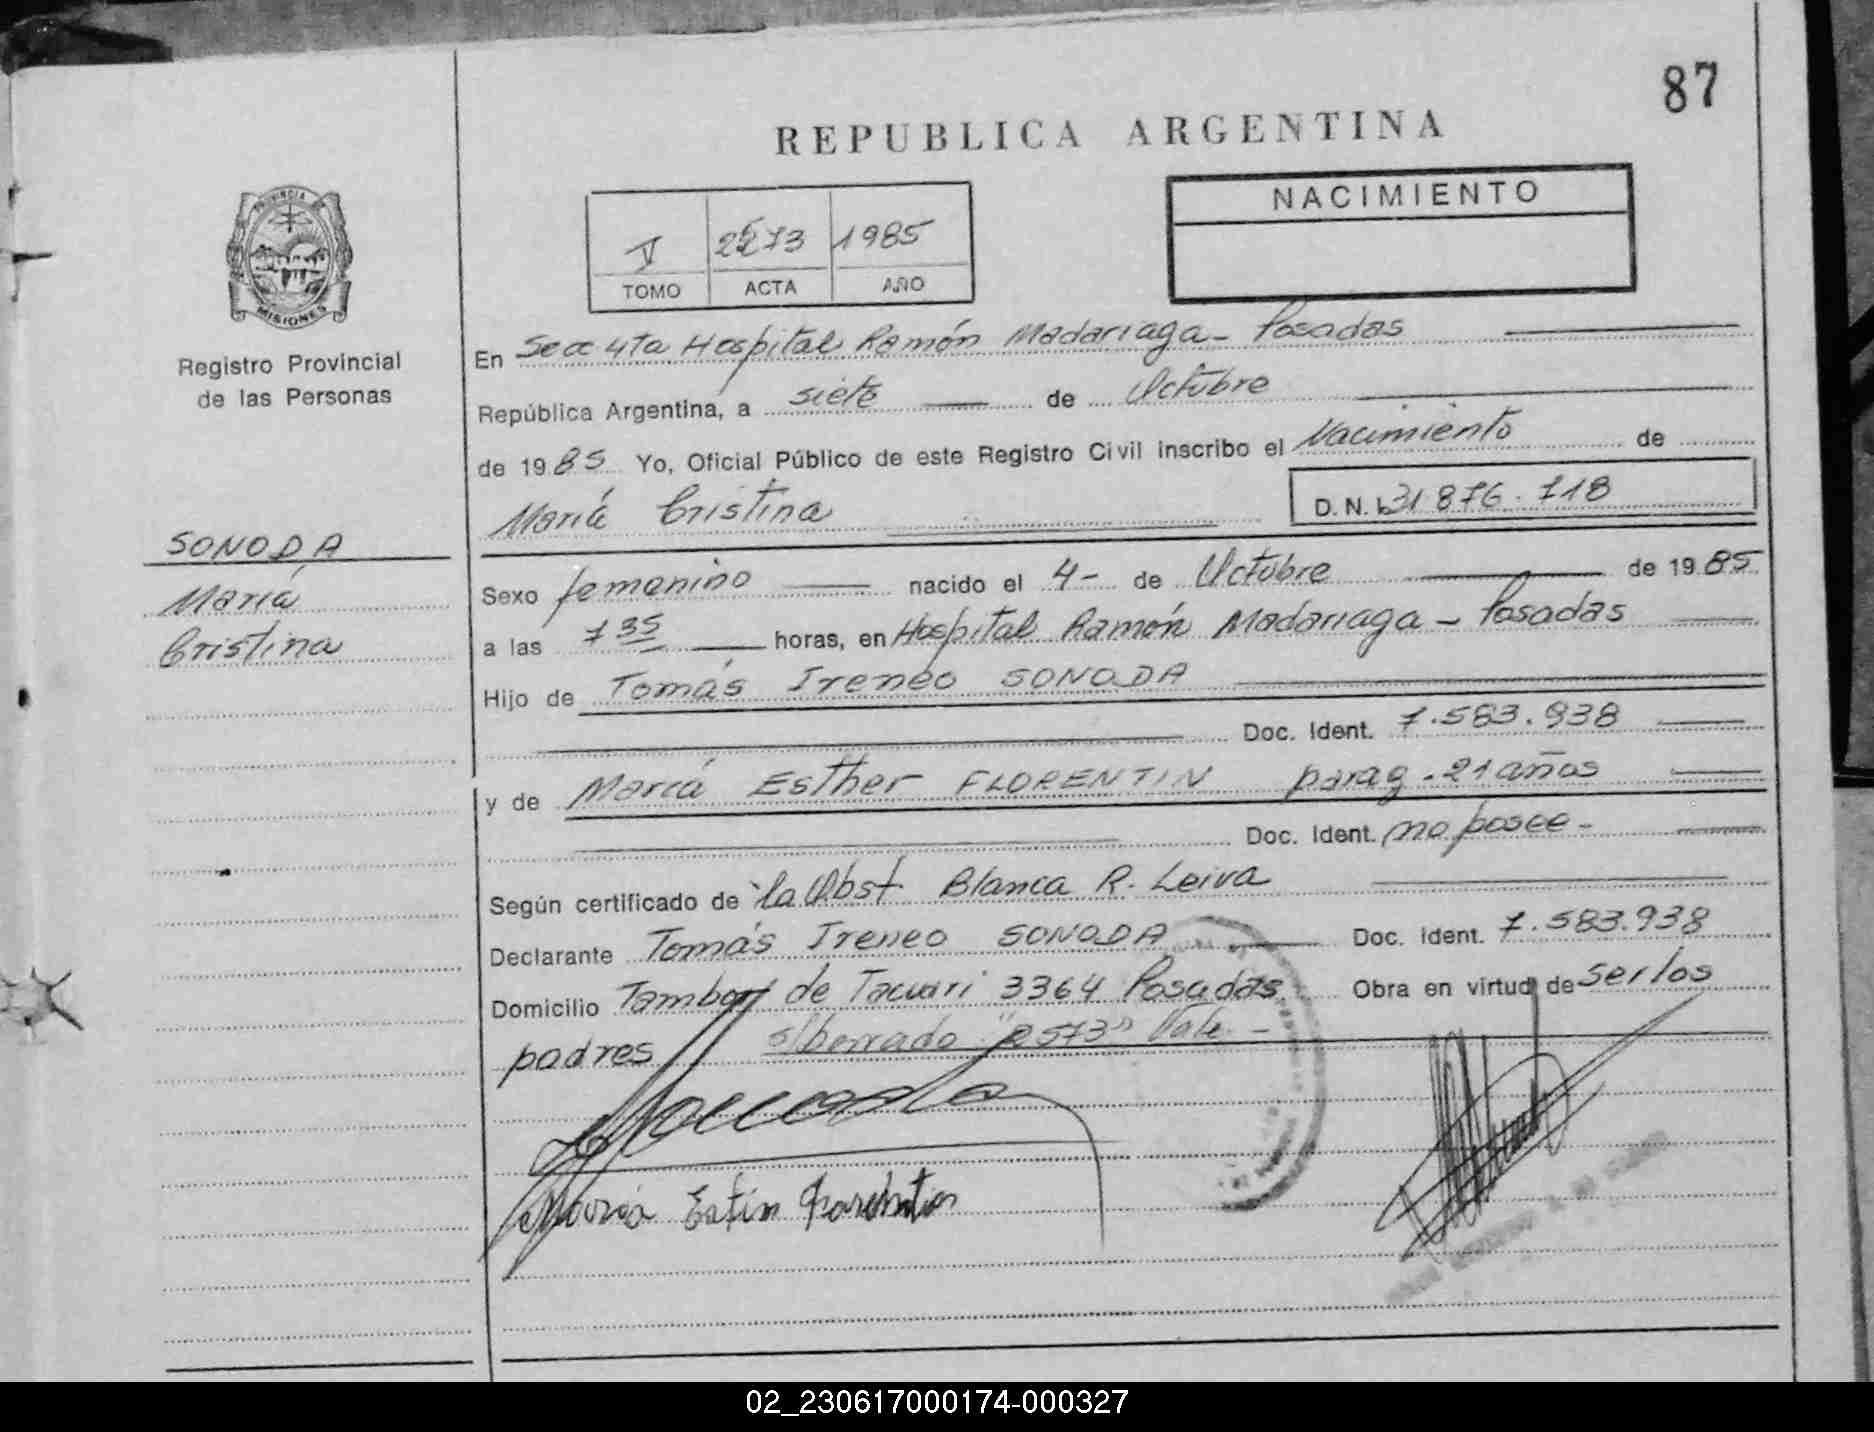 87
REPUBLICA ARGENTINA
PROVINCIA DE
MISIONES
Registro Provincial
de las Personas
V 2273 1985
TOMO ACTA AÑO
NACIMIENTO
En Secc 4ta Hospital Ramón Madariaga - Posadas
República Argentina, a siete de Octubre
de 1985 Yo, Oficial Público de este Registro Civil inscribo el Nacimiento de
María Cristina D.N.I. 31876.718
SONODA
María
Cristina
Sexo femenino nacido el 4- de Octubre de 1985
a las 7 35 horas, en Hospital Ramón Madariaga - Posadas
Hijo de Tomás Ireneo SONODA
Doc. Ident. 7.583.938
y de María Esther FLORENTIN parag. 21 años
Doc. Ident. no posee -
Según certificado de la Obst. Blanca R. Leiva
Declarante Tomás Ireneo SONODA Doc. Ident. 7.583.938
Domicilio Tambor de Tacuari 3364 Posadas Obra en virtud de ser los
padres s/borrado Vale -
María
02_230617000174-000327